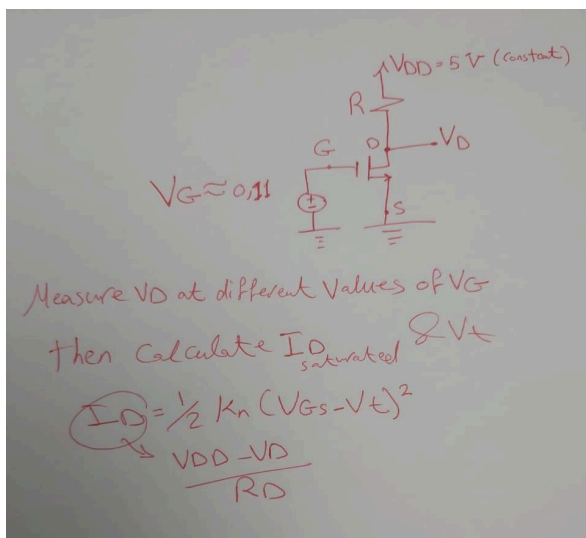 VDD = 5 V (constant)
R
D
VD
G
VG ≈ 0,11
S
Measure VD at different values of VG
then Calculate ID saturated & Vt
ID = 1/2 Kn (VGS - Vt)²
VDD - VD
RD